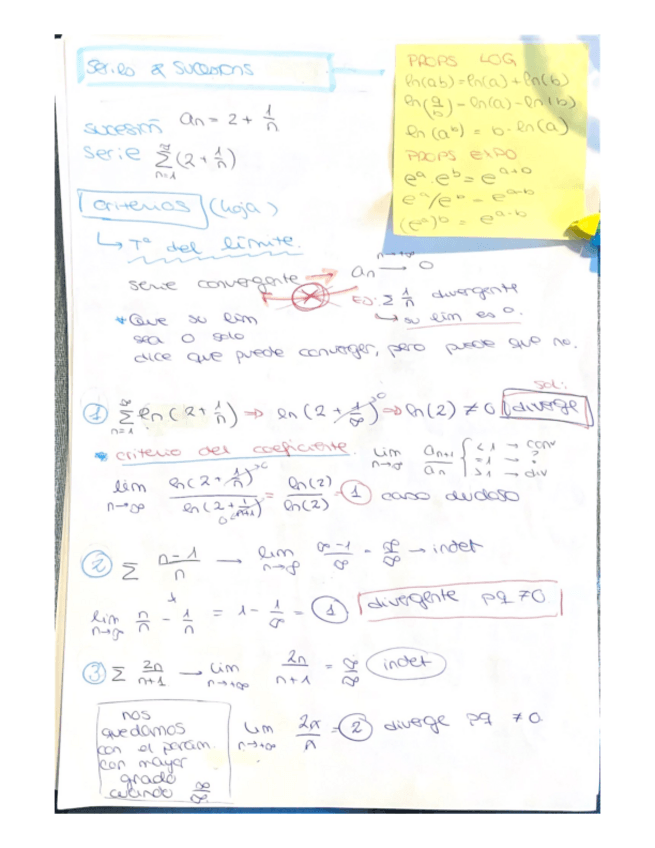 Series & sucesions
PROPS LOG
ln(ab)=ln(a)+ln(b)
ln(a/b)-ln(a)-ln(b)
ln(a^b) = b·ln(a)
PROPS EXPO
e^a·e^b = e^(a+b)
e^a/e^b = e^(a-b)
(e^a)^b = e^(a·b)
sucesión an = 2 + 1/n
serie ∑ n=1 ∞ (2+1/n)
criterios (hoja)
↳ Tª del límite.
serie convergente → an n→+∞ → 0
Ej: ∑ 1/n divergente
↳ su lim es 0.
*Que su lim
sea 0 solo
dice que puede converger, pero puede que no.
sol:
① ∑ n=1 ∞ ln(2+1/n) ⇒ ln(2+1/∞)→0 ⇒ ln(2) ≠ 0 diverge
* criterio del coeficiente. lim n→∞ an+1/an { <1 → conv
=1 → ?
>1 → div
lim n→∞ ln(2+1/n)→0 / ln(2+1/(n+1)) = ln(2)/ln(2) = 1 caso dudoso
② ∑ n-1/n → lim n→∞ ∞-1/∞ = ∞/∞ → indet
lim n→∞ n/n - 1/n = 1 - 1/∞ = 1 divergente pq ≠0
③ ∑ 2n/n+1 → lim n→+∞ 2n/n+1 = ∞/∞ indet
nos
quedamos
con el
con mayor
grado
cuando ∞/∞
lim n→+∞ 2n/n = 2 diverge pq ≠0